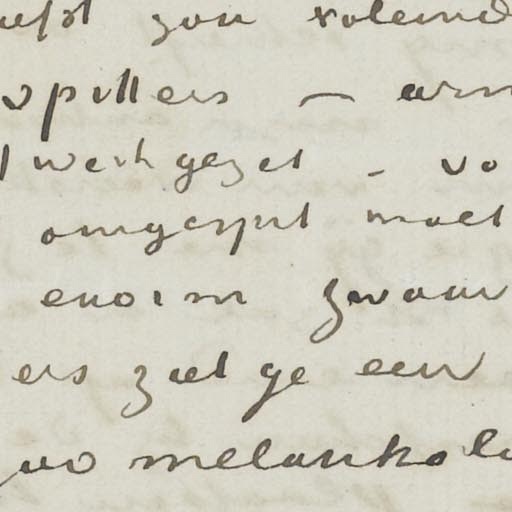 zou
spitters — arm
werk gezet - vo
omgespit moet
enorm zwaar
ers ziet ge een
zoo melankoli